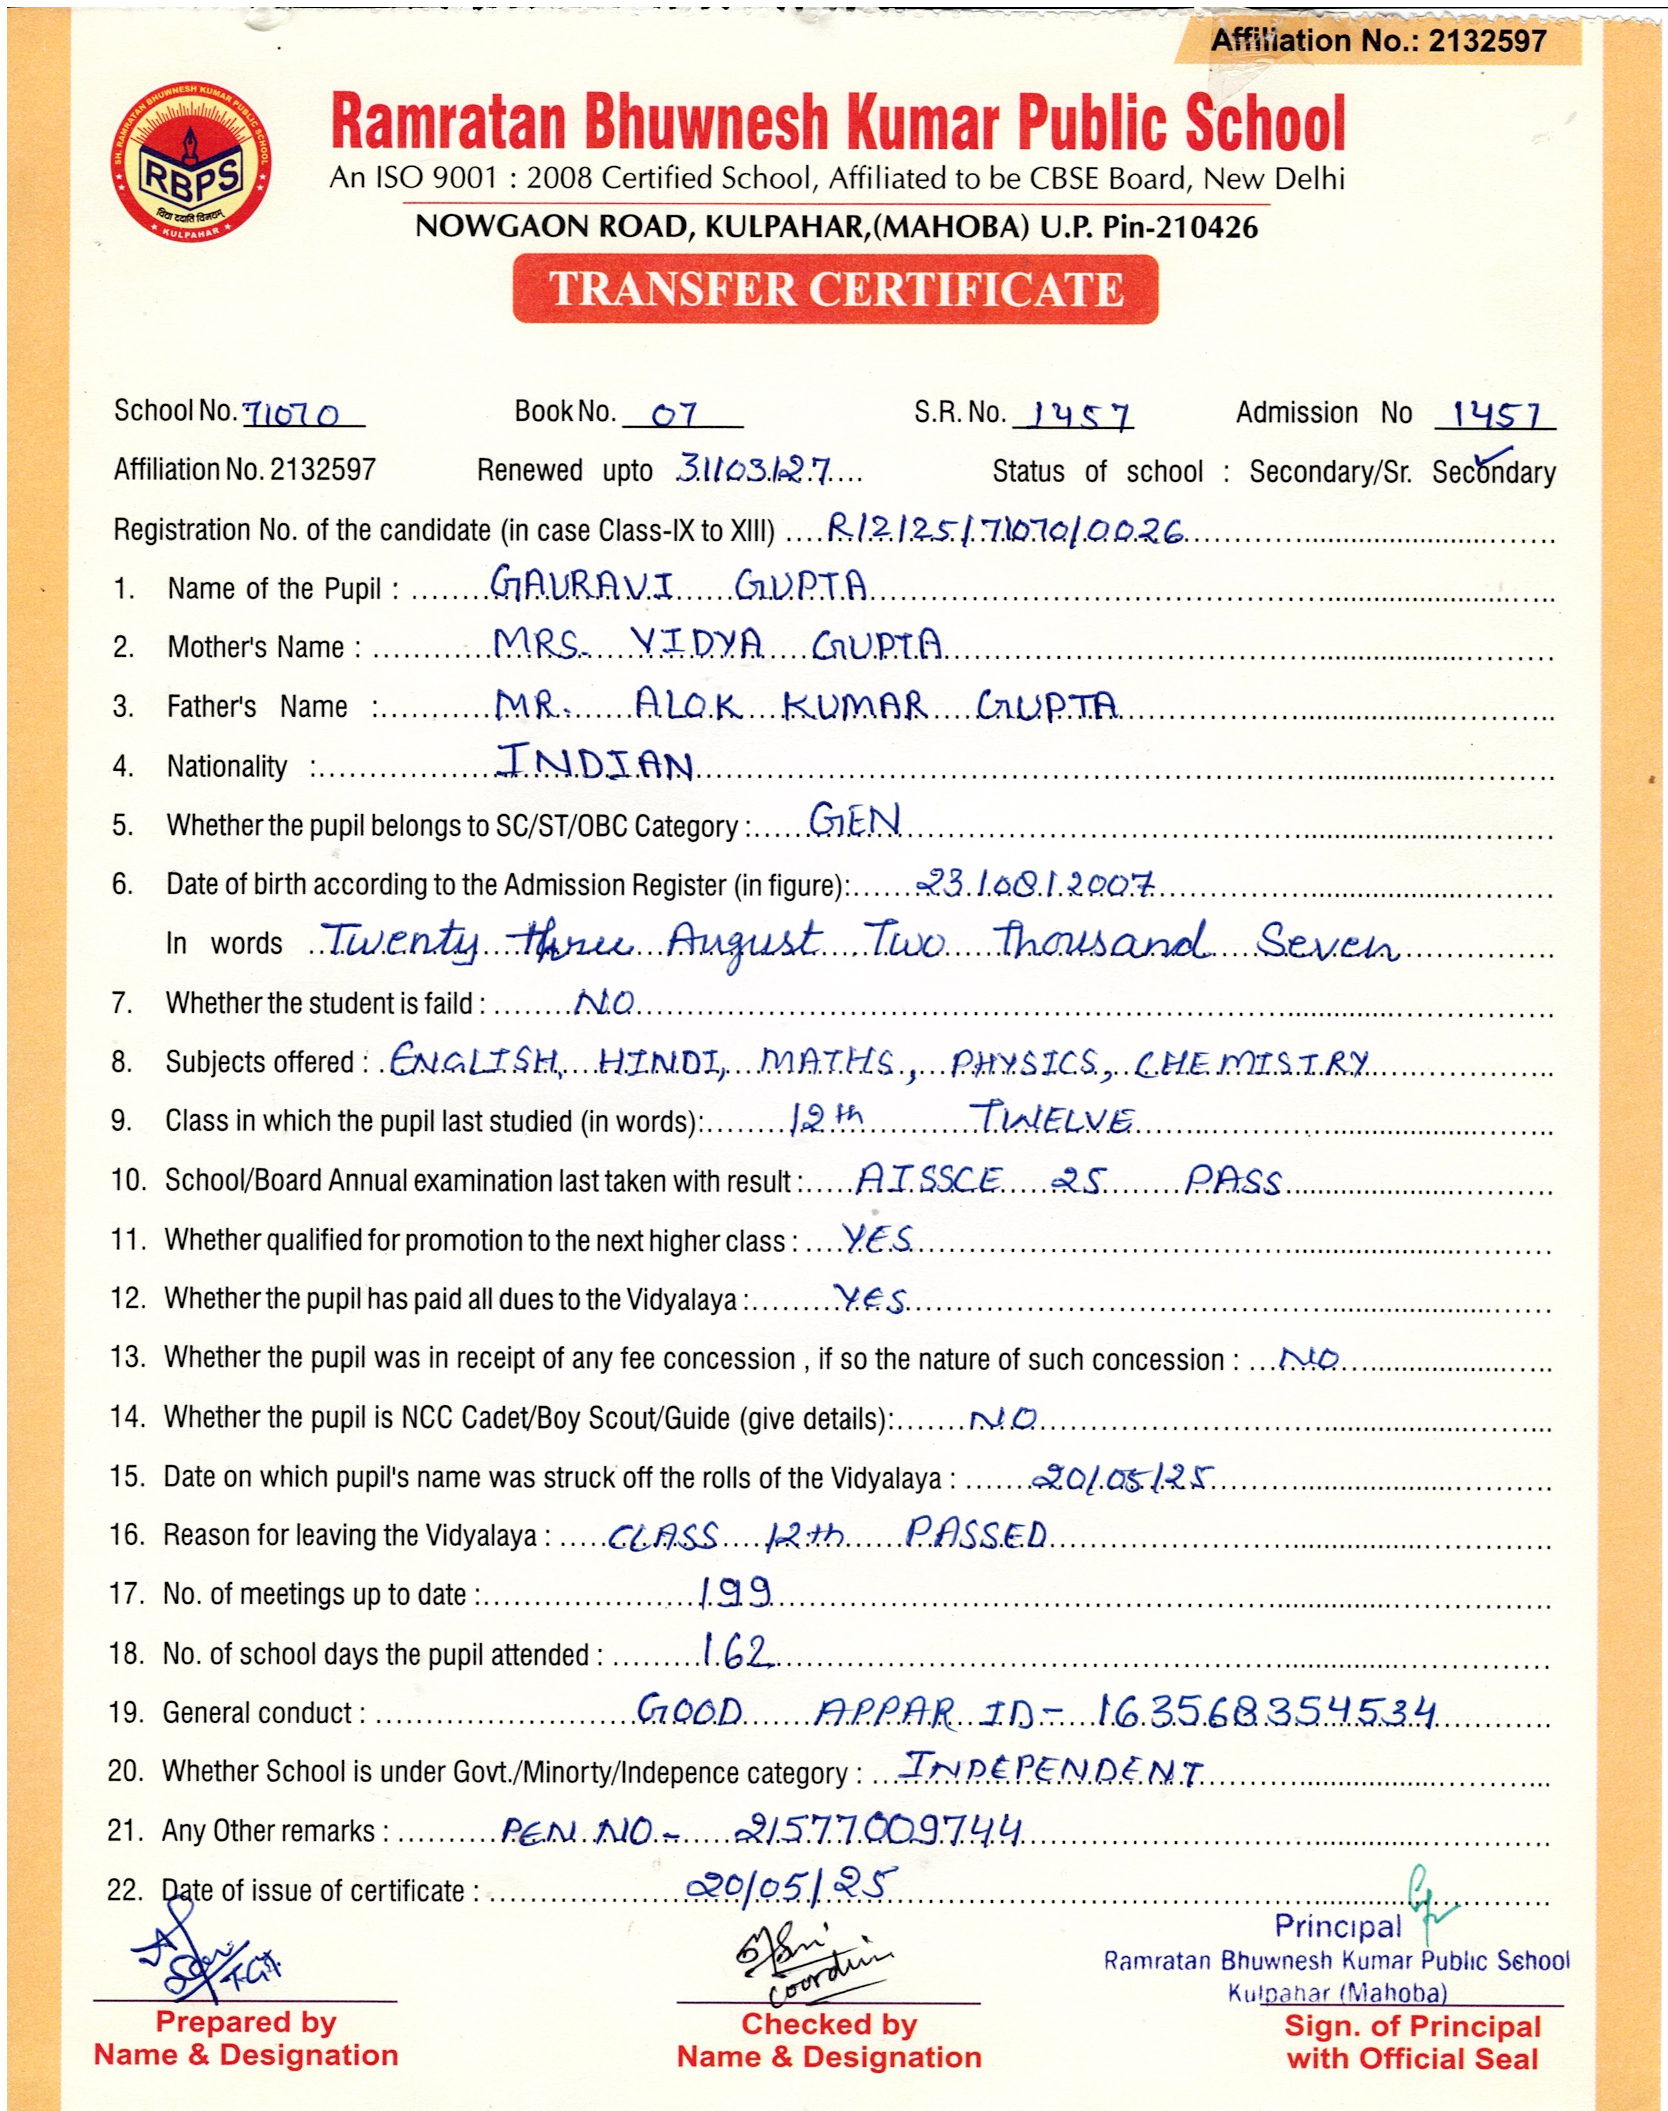 Affiliation No.: 2132597
SH. RAMRATAN BHUWNESH KUMAR PUBLIC SCHOOL
RBPS
विद्या ददाति विनयम्
KULPAHAR
Ramratan Bhuwnesh Kumar Public School
An ISO 9001 : 2008 Certified School, Affiliated to be CBSE Board, New Delhi
NOWGAON ROAD, KULPAHAR,(MAHOBA) U.P. Pin-210426
TRANSFER CERTIFICATE
School No. 71070 Book No. 07 S.R. No. 1457 Admission No 1457
Affiliation No. 2132597 Renewed upto 31/03/27 Status of school : Secondary/Sr. Secondary
Registration No. of the candidate (in case Class-IX to XIII) R/2/25/71070/0026
1. Name of the Pupil : GAURAVI GUPTA
2. Mother's Name : MRS. VIDYA GUPTA
3. Father's Name : MR. ALOK KUMAR GUPTA
4. Nationality : INDIAN
5. Whether the pupil belongs to SC/ST/OBC Category : GEN
6. Date of birth according to the Admission Register (in figure): 23/08/2007
In words Twenty three August Two thousand Seven
7. Whether the student is faild : NO
8. Subjects offered : ENGLISH, HINDI, MATHS, PHYSICS, CHEMISTRY
9. Class in which the pupil last studied (in words): 12th TWELVE
10. School/Board Annual examination last taken with result : AISSCE 25 PASS
11. Whether qualified for promotion to the next higher class : YES
12. Whether the pupil has paid all dues to the Vidyalaya : YES
13. Whether the pupil was in receipt of any fee concession , if so the nature of such concession : NO
14. Whether the pupil is NCC Cadet/Boy Scout/Guide (give details): NO
15. Date on which pupil's name was struck off the rolls of the Vidyalaya : 20/05/25
16. Reason for leaving the Vidyalaya : CLASS 12th PASSED
17. No. of meetings up to date : 199
18. No. of school days the pupil attended : 162
19. General conduct : GOOD APPAR ID- 163568354534
20. Whether School is under Govt./Minorty/Indepence category : INDEPENDENT
21. Any Other remarks : PEN NO - 21577009744
22. Date of issue of certificate : 20/05/25
Principal
Ramratan Bhuwnesh Kumar Public School
Kulpahar (Mahoba)
Prepared by Checked by Sign. of Principal
Name & Designation Name & Designation with Official Seal